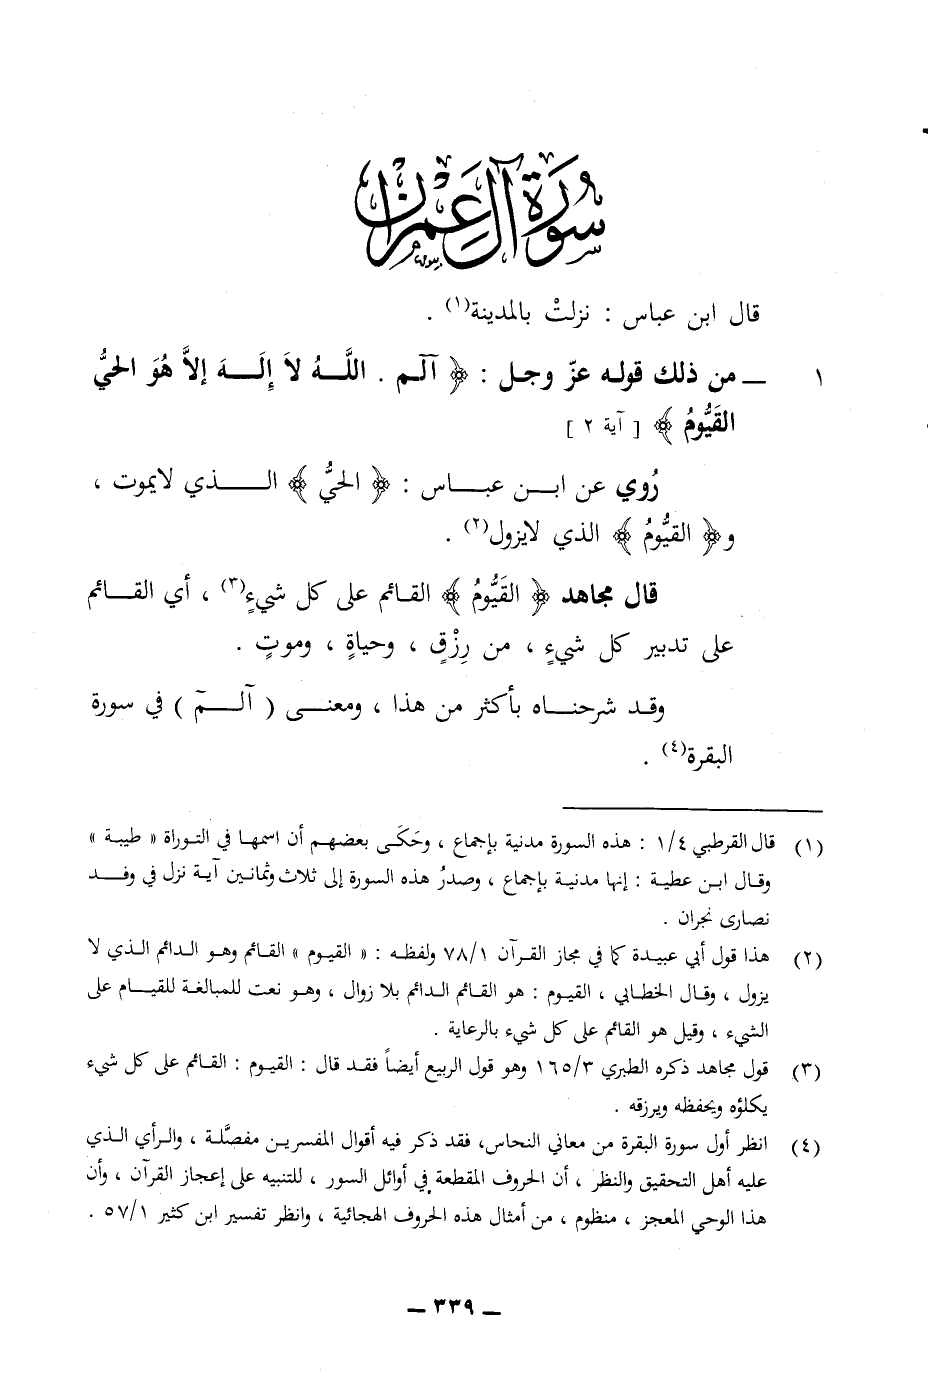 سورة آل عمرن
قال ابن عباس : نزلتْ بالمدينة(١) .
١ ـ من ذلك قوله عزّ وجل : ﴿ آلـم . اللَّـهُ لاَ إِلَـهَ إلاَّ هُوَ الحَيُّ
القَيُّومُ ﴾ [ آية ٢ ]
رُوي عن ابـن عبـاس : ﴿ الحيُّ ﴾ الـذي لايموت ،
و﴿ القيُّومُ ﴾ الذي لايزول(٢) .
قال مجاهد ﴿ القَيُّومُ ﴾ القائم على كل شيءٍ(٣) ، أي القـائم
على تدبير كل شيءٍ ، من رِزْقٍ ، وحياةٍ ، وموتٍ .
وقـد شرحنـاه بأكثر من هذا ، ومعنـى ( آلـمٓ ) في سورة
البقرة(٤) .
(١) قال القرطبي ١/٤ : هذه السورة مدنية بإجماع ، وحَكَى بعضهم أن اسمها في التوراة « طيبة »
وقال ابن عطية : إنها مدنية بإجماع ، وصدرُ هذه السورة إلى ثلاث وثمانين آية نزل في وفد
نصارى نجران .
(٢) هذا قول أبي عبيدة كما في مجاز القرآن ٧٨/١ ولفظه : « القيوم » القائم وهو الدائم الذي لا
يزول ، وقال الخطابي ، القيوم : هو القائم الدائم بلا زوال ، وهو نعت للمبالغة للقيام على
الشيء ، وقيل هو القائم على كل شيء بالرعاية .
(٣) قول مجاهد ذكره الطبري ١٦٥/٣ وهو قول الربيع أيضاً فقد قال : القيوم : القائم على كل شيء
يكلؤه ويحفظه ويرزقه .
(٤) انظر أول سورة البقرة من معاني النحاس، فقد ذكر فيه أقوال المفسرين مفصَّلة ، والرأي الذي
عليه أهل التحقيق والنظر ، أن الحروف المقطعة في أوائل السور ، للتنبيه على إعجاز القرآن ، وأن
هذا الوحي المعجز ، منظوم ، من أمثال هذه الحروف الهجائية ، وانظر تفسير ابن كثير ٥٧/١ .
ـ ٣٣٩ ـ